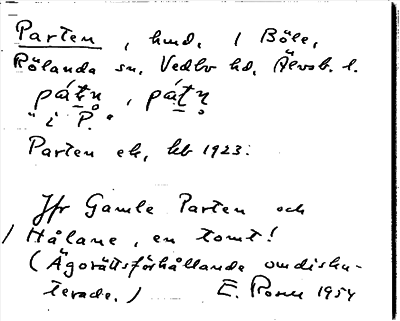 Parten, hmd, 1 Böle,
Rölanda sn, Vedbo hd, Älvsb. l.
pátn̥, pátn̥
"i P."
Parten ek, kb 1923:
Jfr Gamle Parten och
/ Hålane, en tomt!
(Ägorättsförhållande omdisku-
terade.) E. Rosen 1954